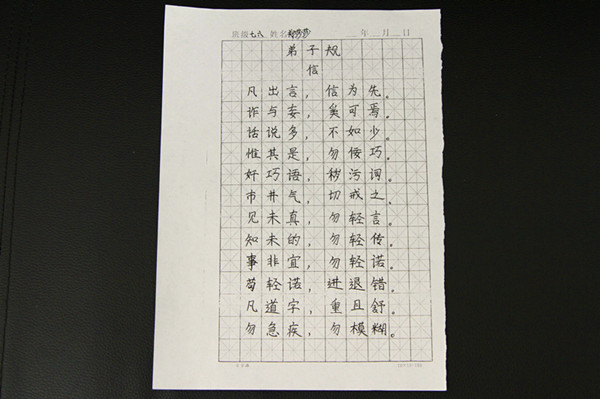 班级 七八 姓名 年 月 日
弟子规
信
凡出言，信为先。
诈与妄，奚可焉。
话说多，不如少。
惟其是，勿佞巧。
奸巧语，秽污词。
市井气，切戒之。
见未真，勿轻言。
知未的，勿轻传。
事非宜，勿轻诺。
苟轻诺，进退错。
凡道字，重且舒。
勿急疾，勿模糊。